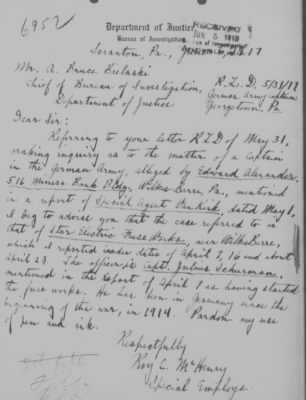 6952
Department of Justice,
Bureau of Investigation,
RECEIVED
JUN 5 1918
Scranton, Pa.,
Mr. A. Bruce Bielaski
Chief of Bureau of Investigation,
Department of Justice
R.L.D. 5/31/17
German Army captain
Georgetown, Pa
Dear Sir:
Referring to your letter RLD of May 31,
making inquiry as to the matter of a Captain
in the German Army, alleged by Edward Alexander,
516 Miners Bank Bldg. Wilkes-Barre, Pa., mentioned
in a report of Special Agent dated May 6,
I beg to advise you that the case referred to is
that of Star Electric Fuse Works, near Wilkes-Barre,
which I reported under dates of April 7, 16 and
April 23. The officer is Capt. Julius
mentioned in the report of April 7 as having started
the fuse works. He has been in Germany since the
beginning of the war, in 1914. Pardon my use
of pen and ink.
Respectfully
Roy C. McHenry
Special Employe.